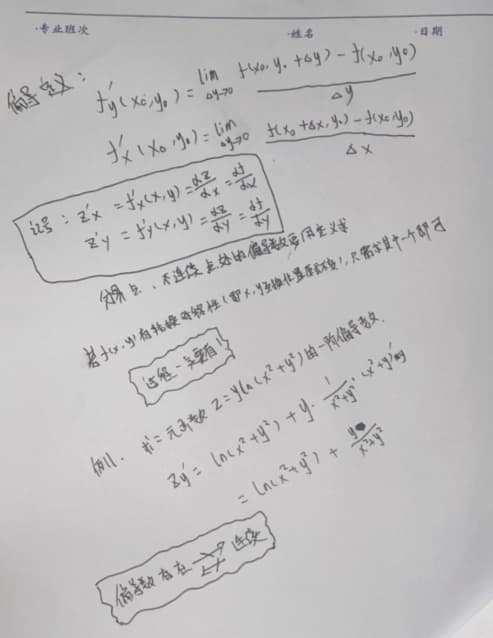 ·专业班次 ·姓名 ·日期
偏导定义:
f'y(x₀,y₀) = lim Δy→0 f(x₀, y₀+Δy) - f(x₀,y₀) / Δy
f'x(x₀,y₀) = lim Δy→0 f(x₀+Δx,y₀) - f(x₀,y₀) / Δx
记号: z'x = f'x(x,y) = dz/dx = df/dx
z'y = f'y(x,y) = dz/dy = df/dy
分界点、不连续点处的偏导数要用定义求
若f(x,y)有轮换对称性(即x,y互换位置后不变),只需求其中一个即可
过程一定要有!
例1. 求二元函数 z=yln(x²+y²)的一阶偏导数.
Zy' = ln(x²+y²) + y· 1/x²+y² ·(x²+y²)'
= ln(x²+y²) + y/x²+y²
偏导数存在 连续